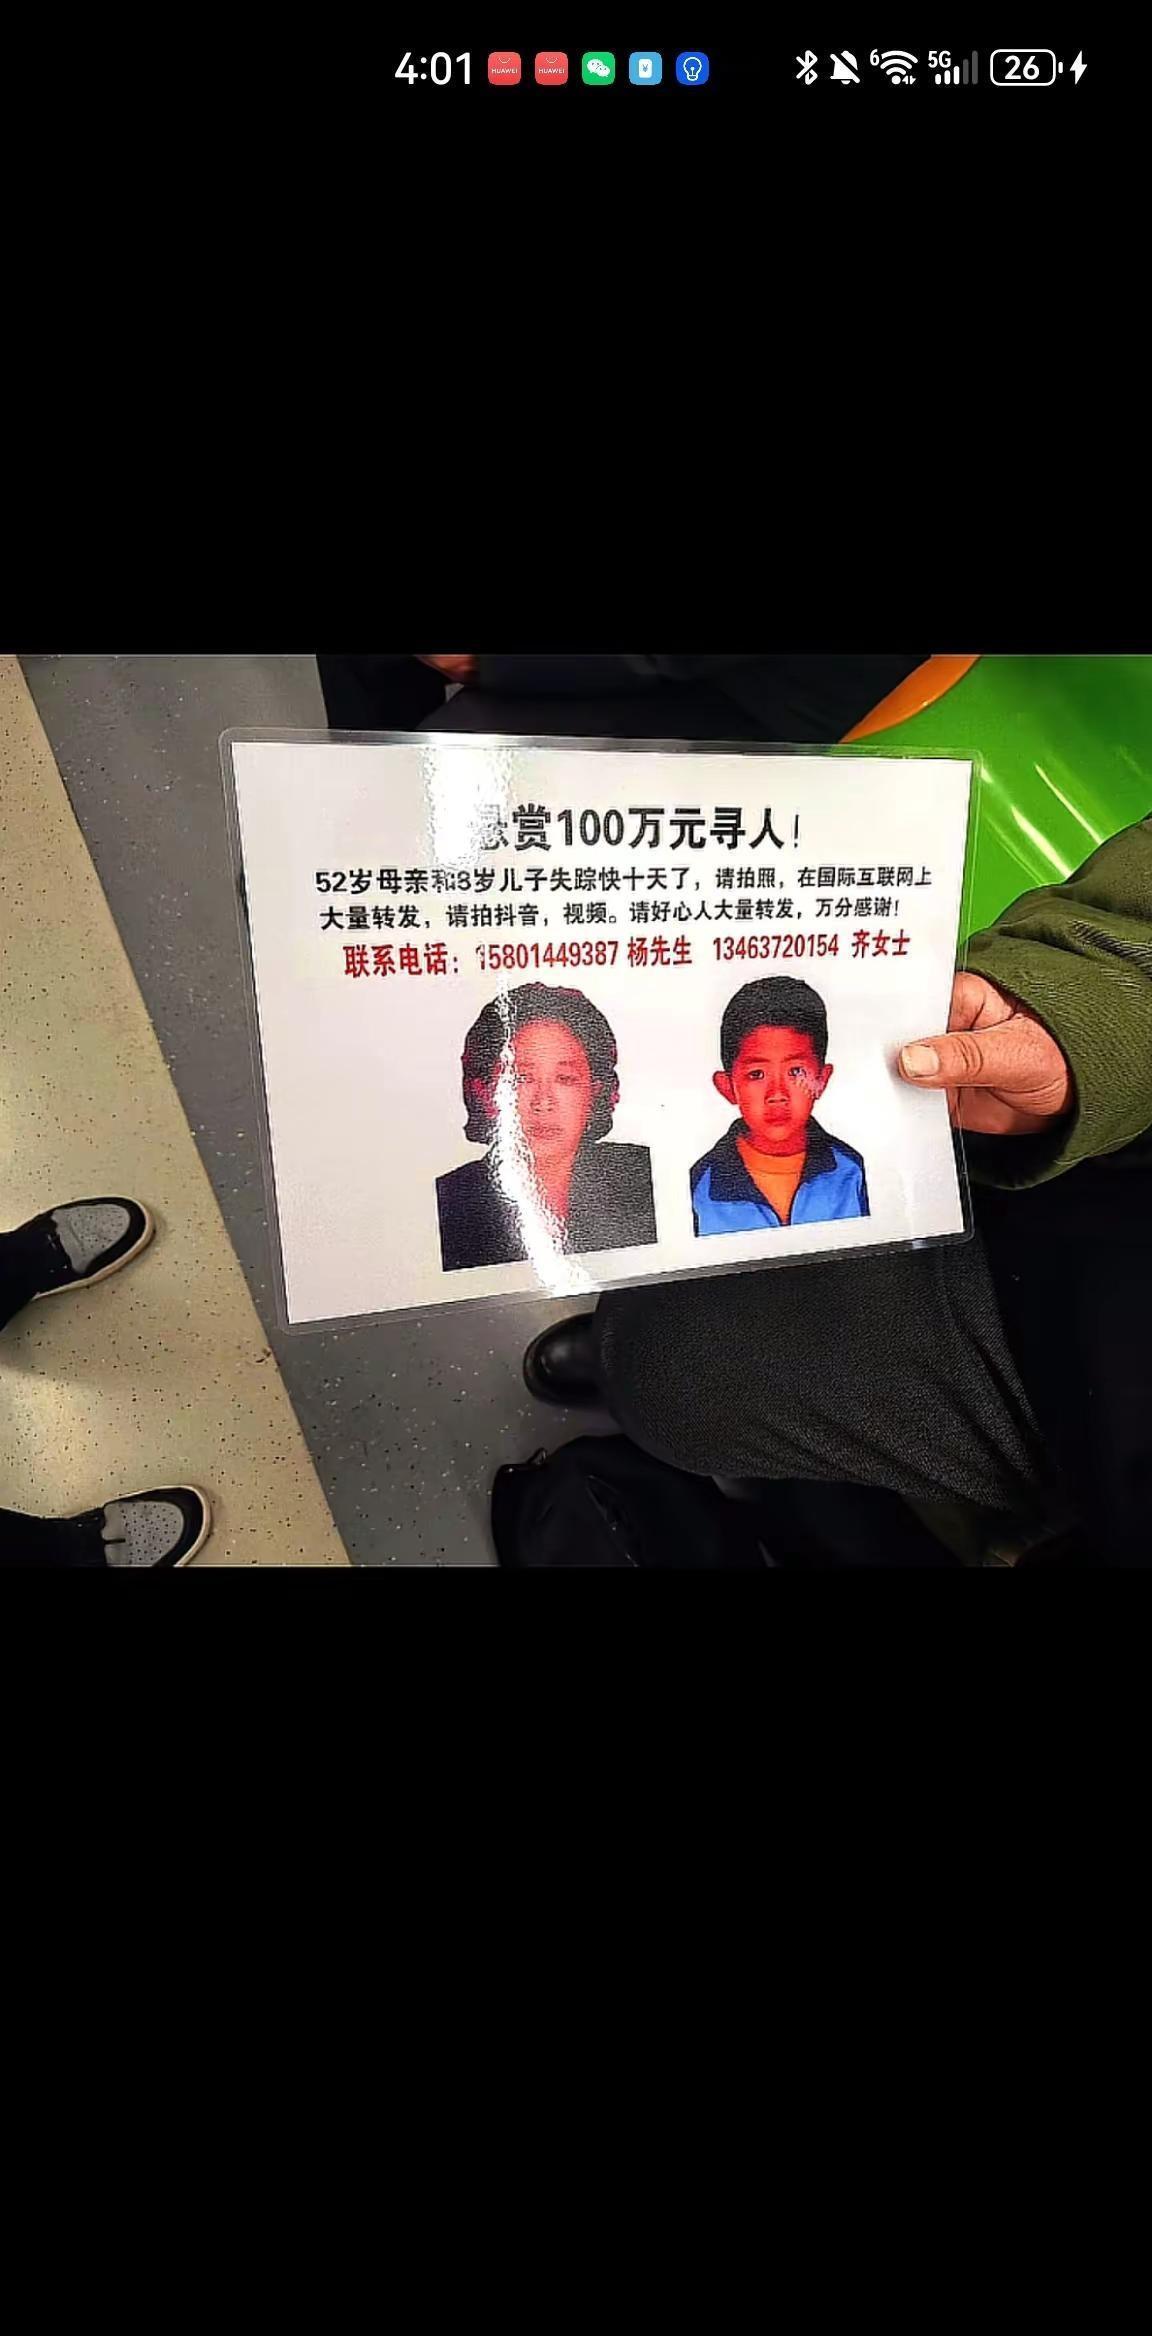 4:01
HUAWEI HUAWEI
6 5G 26
悬赏100万元寻人！
52岁母亲和8岁儿子失踪快十天了，请拍照，在国际互联网上
大量转发，请拍抖音，视频。请好心人大量转发，万分感谢！
联系电话：15801449387 杨先生 13463720154 齐女士